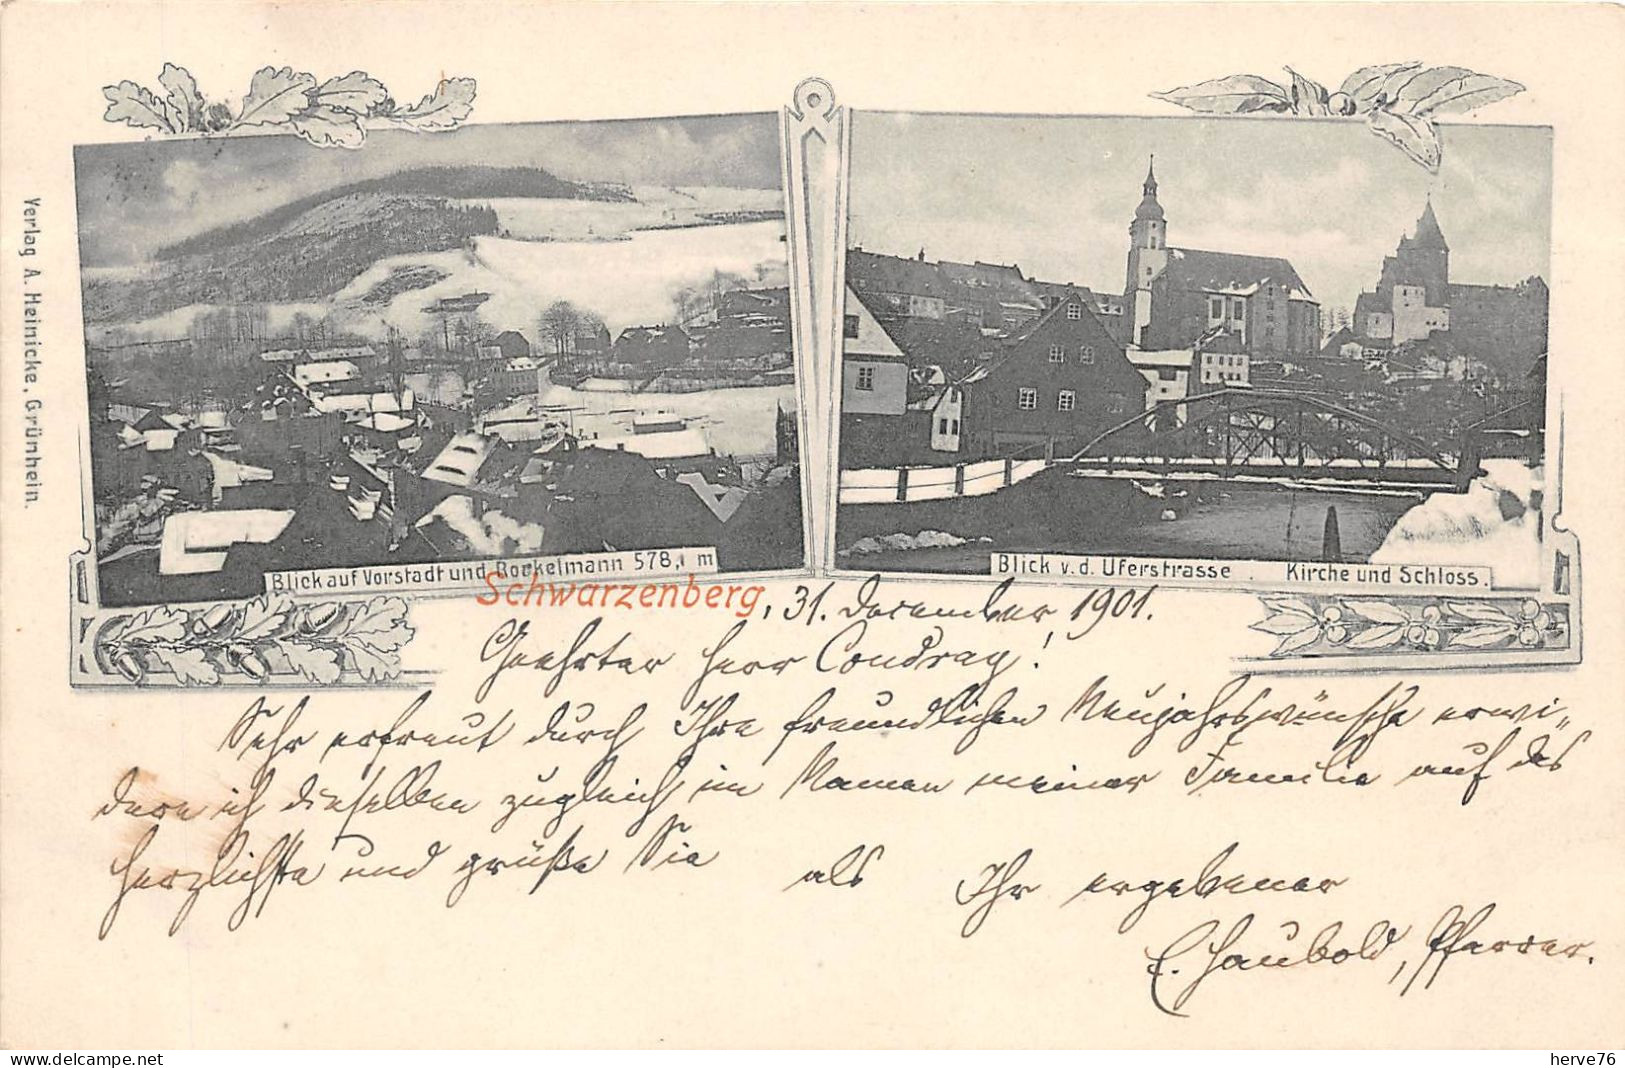 Verlag A. Heinicke, Grünhein.
Blick auf Vorstadt und Rockelmann 578,1 m
Blick v. d. Uferstrasse. Kirche und Schloss.
Schwarzenberg, 31. Dezember 1901.
Geehrter Herr Condray!
Sehr erfreut durch Ihre freundlichen Neujahrswünsche erwi-
dere ich dieselben zugleich im Namen meiner Familie auf das
herzlichste und grüße Sie als Ihr ergebener
E. Haubold, Pfarrer.
herve76
www.delcampe.net